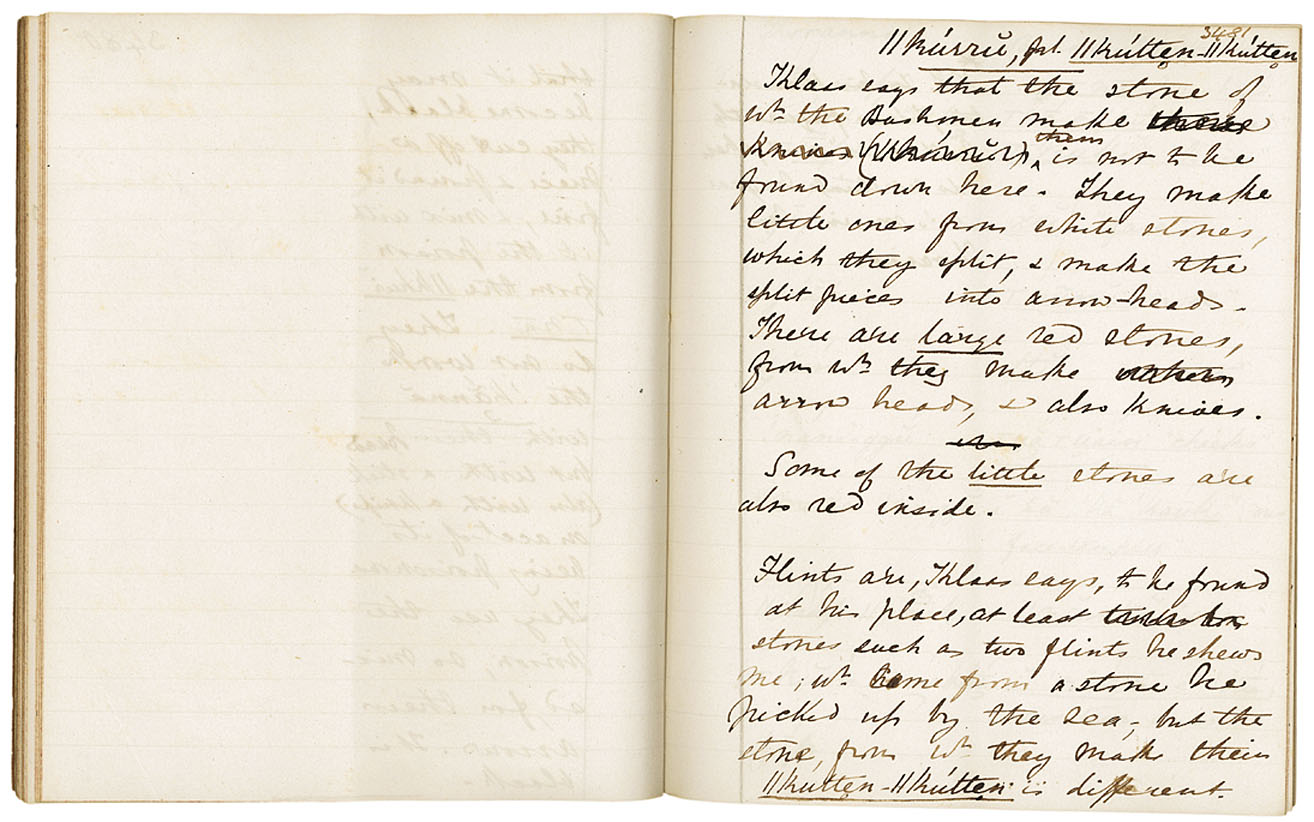 3481
||kúrrŭ, pl. ||kúttęn-||kúttęn
Klaas says that the stone of
wh. the Bushmen make
them
is not to be
found down here. They make
little ones from white stones,
which they split, & make the
split pieces into arrow-heads.
There are large red stones,
from wh. they make others
arrow heads, & also knives.
Some of the little stones are
also red inside.
Flints are, Klaas says, to be found
at his place, at least
stones such as two flints he shews
me; wh. came from a stone he
picked up by the sea,- but the
stone, from wh. they make their
||kuttęn-||kúttęn is different.